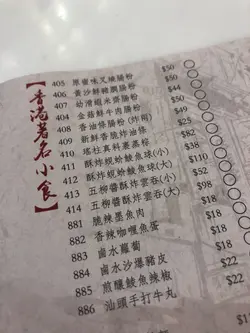 【香港著名小食】
405 原蜜味叉燒腸粉 $50
406 黃沙鮮豬膶腸粉 $50
407 幼滑蝦米齋腸粉
404 金菇鮮牛肉腸粉
408 香油條腸粉(炸兩)
409 新鮮香脆炸油條
410 瑤柱真料蒸蘿糕
411 酥炸蜆蚧鯪魚球(小)
412 酥炸蜆蚧鯪魚球(大)
413 五柳醬酥炸雲吞(小)
414 五柳醬酥炸雲吞(大)
881 脆辣墨魚肉 $18
882 香辣咖喱魚蛋 $18
883 鹵水蘿蔔 $18
884 鹵水沙爆豬皮 $22
885 煎釀鯪魚辣椒 $22
886 汕頭手打牛丸 $22